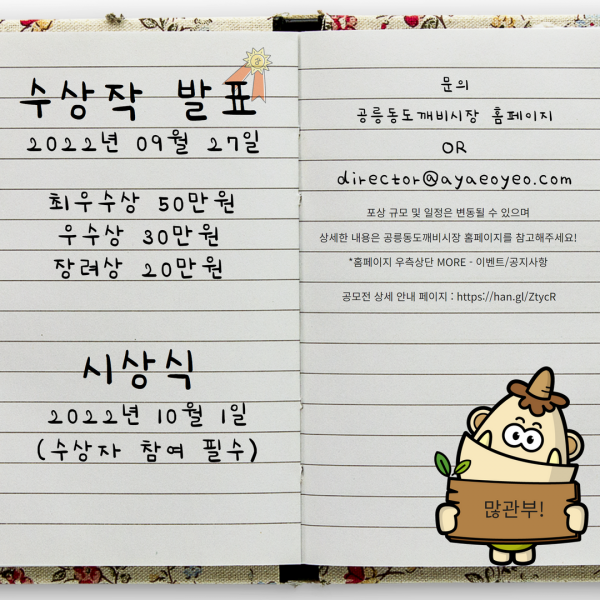 수상작 발표
2022년 09월 27일
최우수상 50만원
우수상 30만원
장려상 20만원
시상식
2022년 10월 1일
(수상자 참여 필수)
문의
공릉동도깨비시장 홈페이지
OR
director@ayaeoyeo.com
포상 규모 및 일정은 변동될 수 있으며
상세한 내용은 공릉동도깨비시장 홈페이지를 참고해주세요!
*홈페이지 우측상단 MORE - 이벤트/공지사항
공모전 상세 안내 페이지 : https://han.gl/ZtycR
많관부!